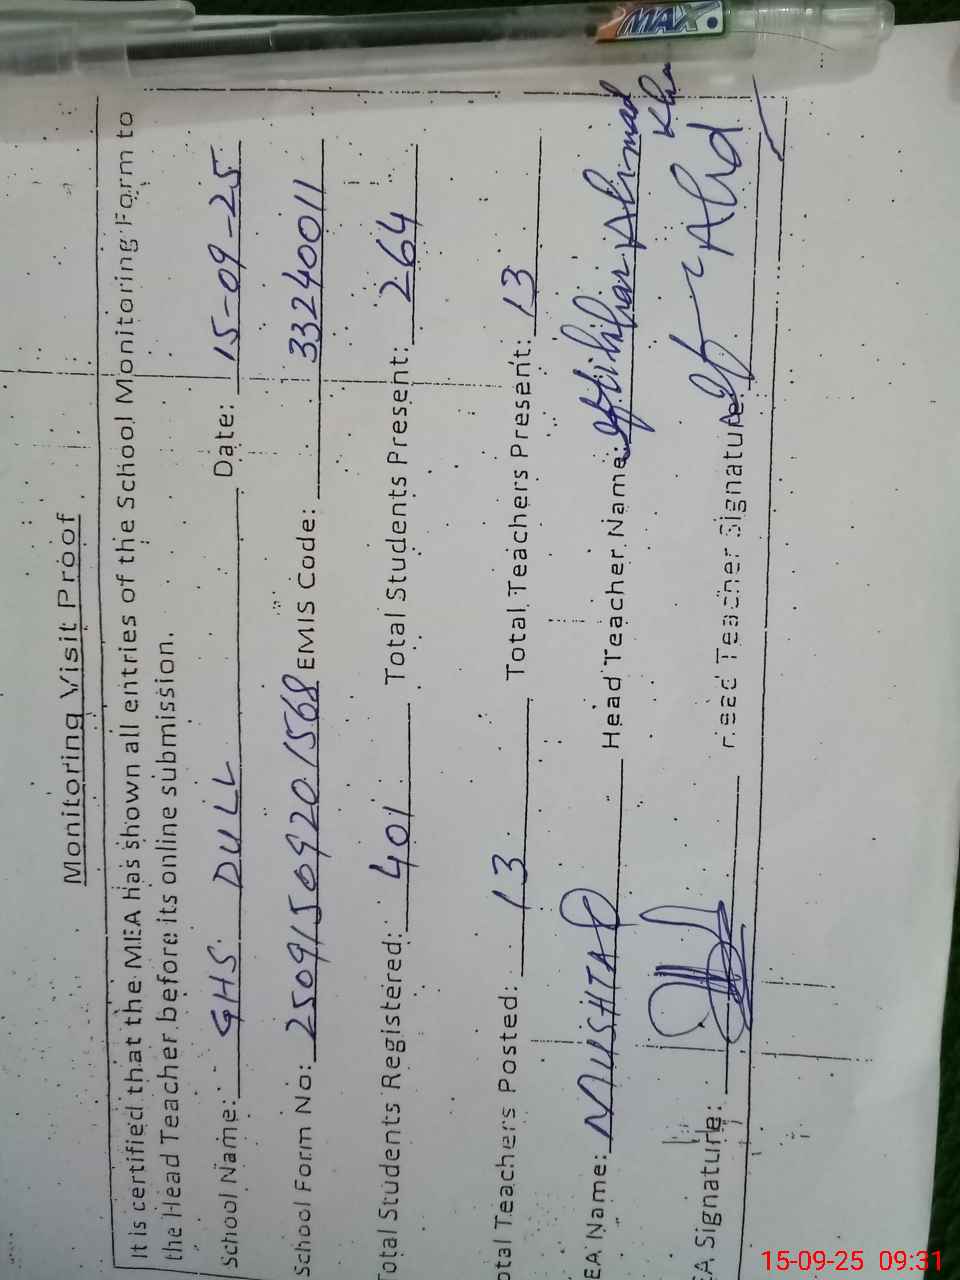 Monitoring Visit Proof
It is certified that the MEA has shown all entries of the School Monitoring Form to
the Head Teacher before its online submission.
School Name: GHS DULL Date: 15-09-25
School Form No: 25091509201568 EMIS Code: 33240011
Total Students Registered: 401 Total Students Present: 264
otal Teachers Posted: 13 Total Teachers Present: 13
EA Name: MUSHTAQ Head Teacher Name: Iftikhar Ahmad Khan
EA Signature: Head Teacher Signature:
MAX
15-09-25 09:31